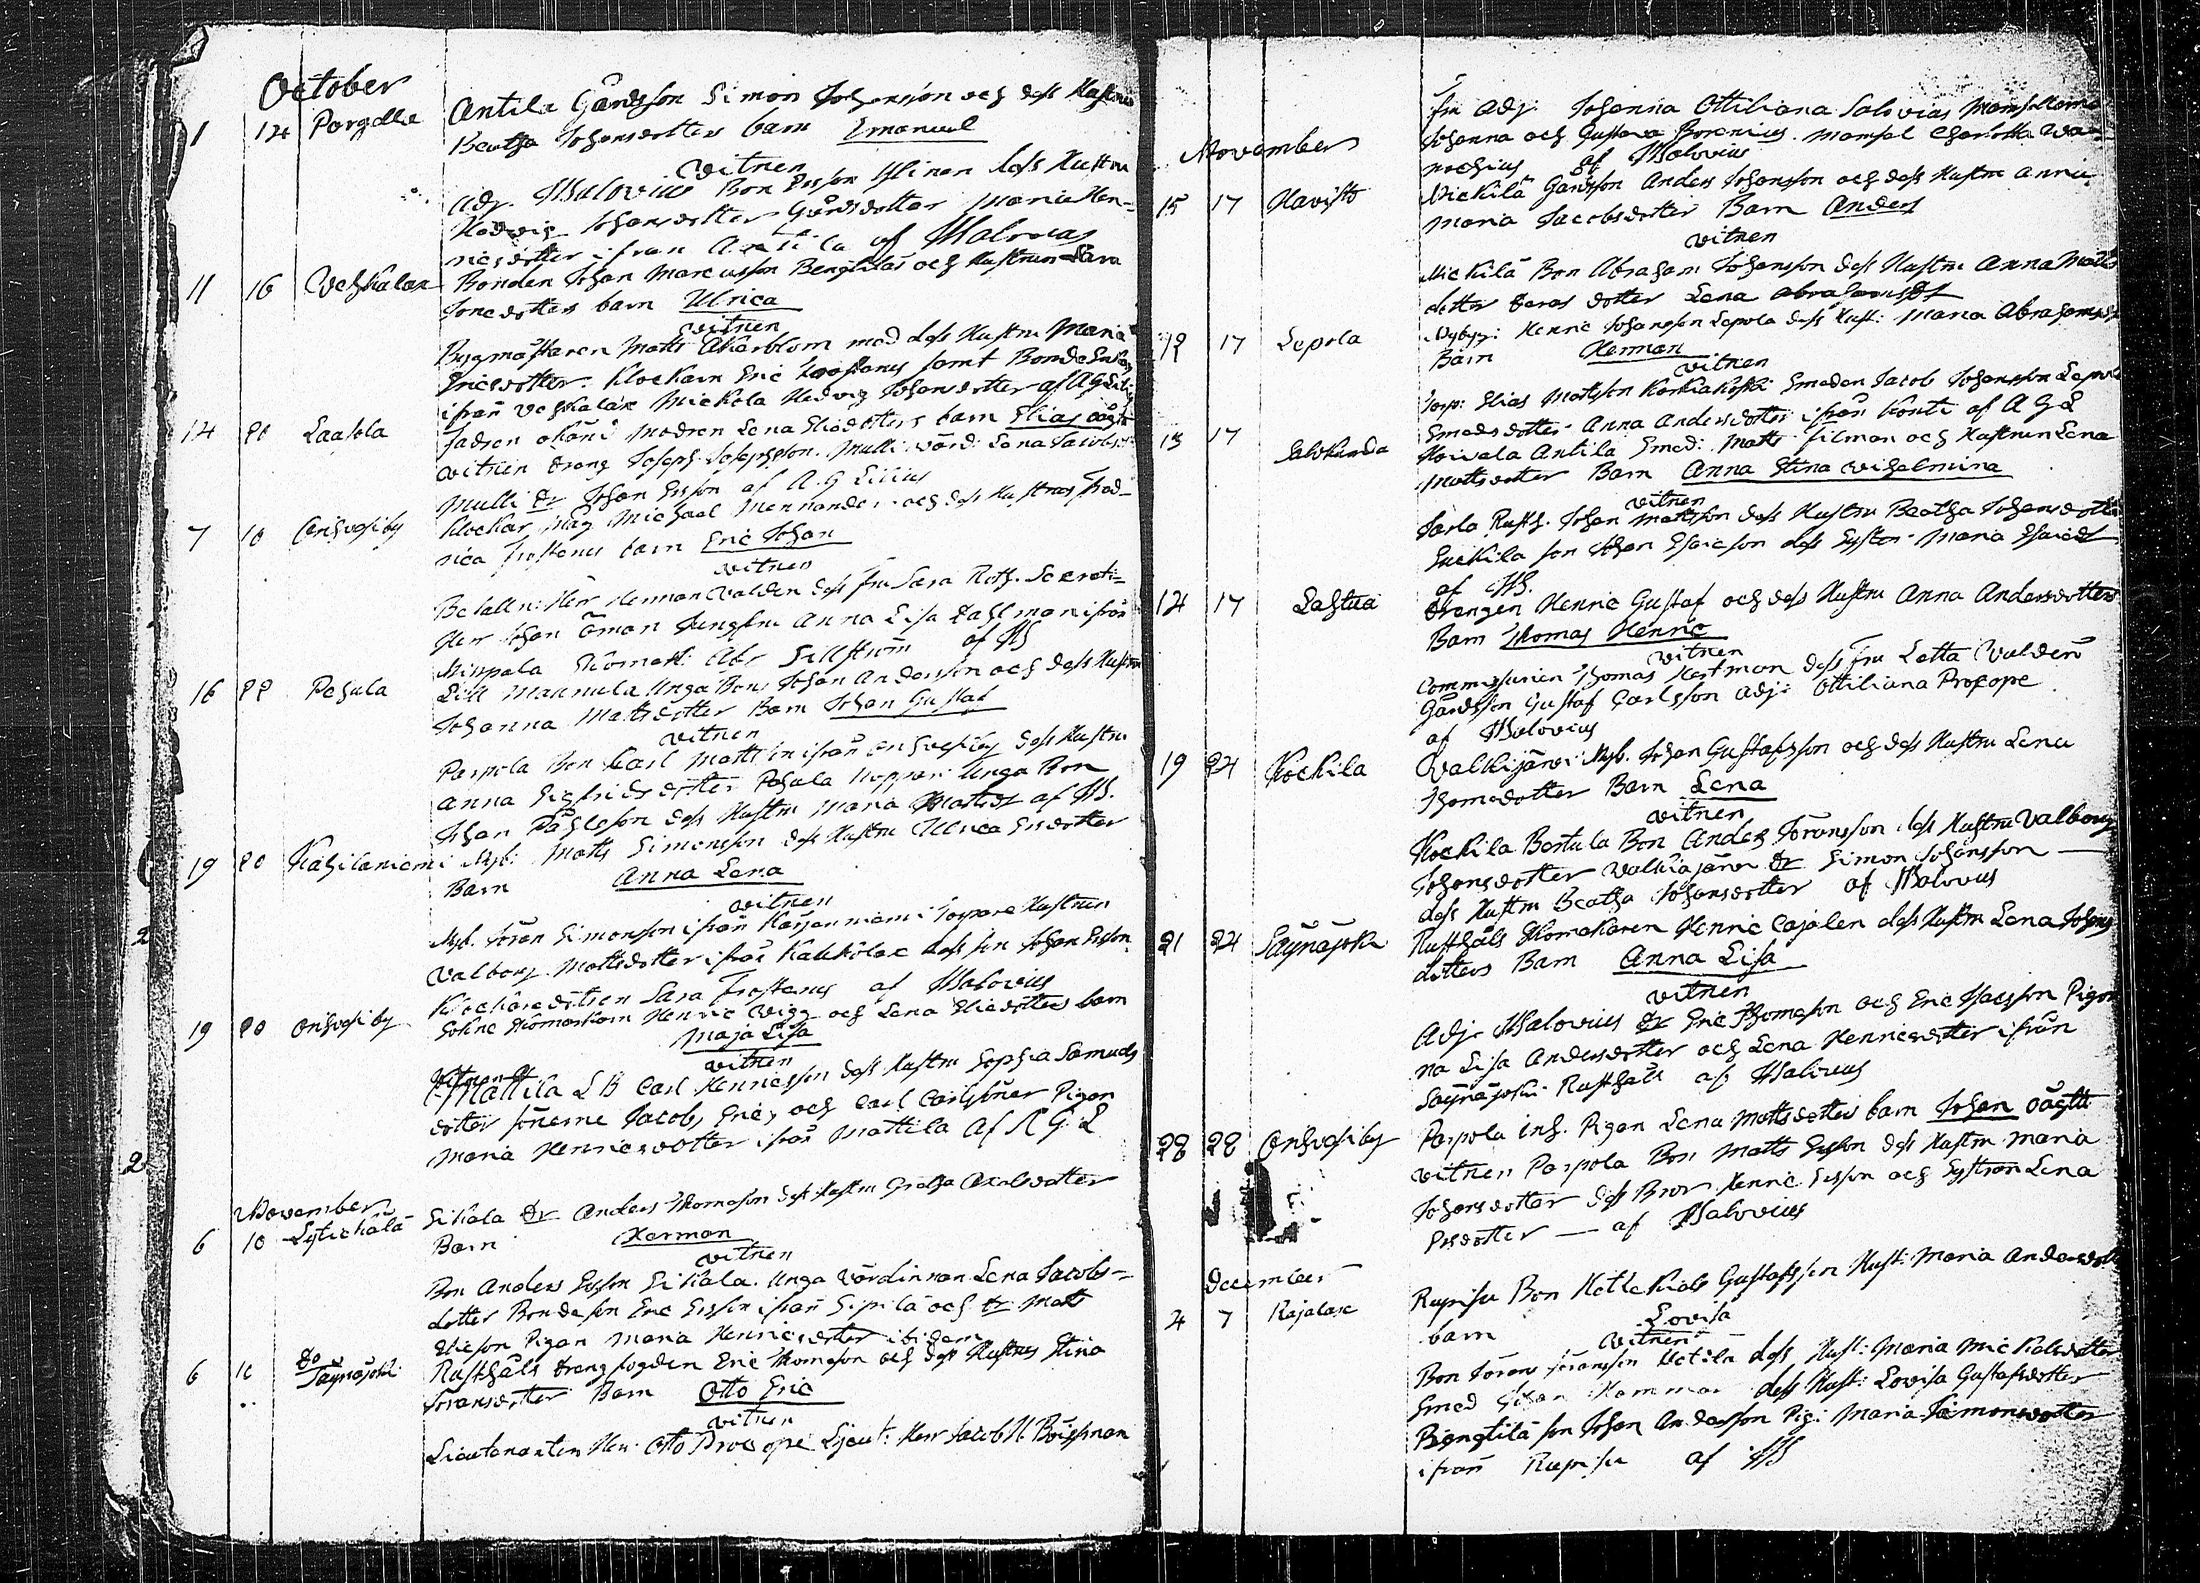 October
1 14 Pargalla Antila Gårdsson Simon Johansson och dess Hustrus
Beatha Johansdotters barn Emanuel
vitnen
Adj. Salovius Bon Ersson dess Hustru
Hedvig Johansdotter Gårdsdotter Maria Hen-
ricsdotter ifrån Antila af Salovius
11 16 Vehkalax Bonden Johan Marcusson Bengtilas och Hustrun Sara
barn Ulrica
vitnen
Bygmästaren Matts Åkerblom med dess Hustru Maria
Ericsdotter. Klockarn Eric samt
ifrån Vehkalax Mickola Hedvig Johansdotter af A G Lilius
14 20 Laasola fadren okänd modren Lena Eliædotters barn Elias oägta
vitnen Dreng Joseph Josephsson. Mulli värd: Lena Jacobsd.
Mulli Dr Johan Ersson af A. G Lilius
7 10 Onhvesiby Klockar Måg Michael Mennander och dess Hustrus Fred-
rica Frosterus barn Eric Johan
vitnen
Herr Herman Valden dess Fru Sara Roth.
Herr Johan Öman Jungfru Anna Lisa Dahlman ifrån
Abr Sellström af HS
16 22 Pasula Lill Mannula Unga Bon Johan Andersson och dess Hustru
Johanna Mattsdotter Barn Johan Gustaf
vitnen
Parpola Bon Carl Matts ifrån Onhvesiby dess Hustru
Anna Sigfridsdotter Pasula Unga Bon
Johan Påhlsson dess Hustru Maria Mattsdr af HS.
19 20 Kahilaniemi Nyb: Matts Simonsson dess Hustru Ulrica Ersdotter
Barn Anna Lena
vitnen
Nyb. Jöran Simonsson ifrån Hustrun
Valborg Mattsdotter ifrån Kalckölax dess son Johan Ersson
Klockaredottren Sara Frosterus af Salovius
19 20 Onhvesiby Sokne Skomakarn Henric Vigg och Lena Eliædotters barn
Maja Lisa
vitnen
Mattila L B Carl Henricsson dess Hustru Sophia Samuels
dotter sönerne Jacob, Eric, och Carl Carlssöner Pigan
Maria Henricsdotter ifrån Mattila af A G L
November
6 10 Lytickälä Sikala Dr Anders Thomasson dess Hustru Gretha Axelsdotter
Barn Herman
vitnen
Bon Anders Ersson Sikala. Unga värdinnan Lena Jacobs-
dotter Bondeson Eric Ersson ifrån Sipilä och Dr Matts
Eliesson Pigan Maria Henricsdotter ibidem
6 10 Do Säynäjoki Rusthåls Drengfogden Eric Thomasson och dess Hustrus Stina
Jöransdotter Barn Otto Eric
vitnen
Lieutenanten Herr Otto Procopé Lieut: Herr Jacob H
Fru Adj. Johanna Ottiliana Salovius Mamsellerna
Johanna och Gustava Borenius. Mamsel Charlotta Wa-
rochius af Salovius
November
15 17 Havisto Mickilä Gårdsson Anders Johansson och dess Hustru Anna
Maria Jacobsdotter Barn Anders
vitnen
Mickilä Bon Abraham Johansson dess Hustru Anna Matts
dotter deras dotter Lena Abrahamsdr
12 17 Lepola Nybygg: Henric Johansson Lepola dess Hust: Maria Abrahamsdr
Barn Herman
vitnen
Torp: Elias Mattsson Korkiakoski Smeden Jacob Johansson Lepola
Smedsdotter Anna Andersdotter ifrån Konti af A G L
13 17 Salokunda Hoivala Antila Smed: Matts Silman och Hustrun Lena
Mattsdotter Barn Anna Stina Vilhelmina
vitnen
Jarla Rusth. Johan Mattsson dess Hustru Beatha Johansdotter
son Johan Esaieson dess Syster Maria Esaiedr
af HS.
14 17 Lahtua Drengen Henric Gustaf och dess Hustru Anna Andersdotters
Barn Thomas Henric
vitnen
Commissarien Thomas Hertman dess Fru Lotta Valden
Gårdsson Gustaf Carlsson Adj: Ottiliana Procope
af Salovius
19 24 Kockila Valkijärvi Nyb. Johan Gustafsson och dess Hustru Lena
Thomædotter Barn Lena
vitnen
Kockila Bertula Bon Anders Jöransson dess Hustru Valborg
Johansdotter Valkiajärvi Dr Simon Johansson
dess Hustru Beatha Johansdotter af Salovius
21 24 Säynäjoki Rusthåls Skomakaren Henric Cajalen dess Hustru Lena Johans
dotters Barn Anna Lisa
vitnen
Adj. Salovius Dr Eric Thomasson och Eric Isacsson Pigor
na Lisa Andersdotter och Lena Henricsdotter ifrån
Säynäjoki Rusthåll af Salovius
28 28 Onhvesiby Parpola Inh. Pigan Lena Mattsdotters barn Johan oägta
vitnen Parpola Bon Matts Ersson dess Hustru Maria
Johansdotter dess Bror Henric Ersson och Systren Lena
Ersdotter — af Salovius
December
4 7 Rajalax Rupisu Bon Gustafsson Hust: Maria Andersdotter
barn Lovisa
vitnen
Bon Jöran Jöransson dess Hust: Maria Mickelsdotter
Smed Johan Hammar dess Hust: Lovisa Gustafsdotter
Bengtilä son Johan Andersson Pig: Maria Simonsdotter
ifrån Rupisu af HS